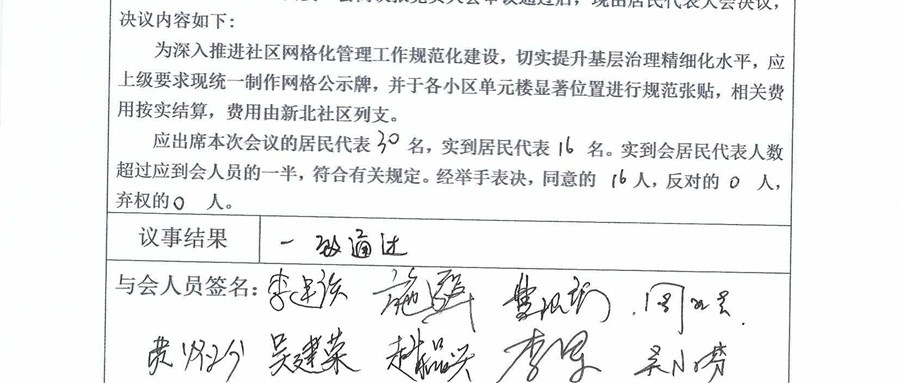 会商议报党员大会审议通过后，现由居民代表大会决议，
决议内容如下：
为深入推进社区网格化管理工作规范化建设，切实提升基层治理精细化水平，应
上级要求现统一制作网格公示牌，并于各小区单元楼显著位置进行规范张贴，相关费
用按实结算，费用由新北社区列支。
应出席本次会议的居民代表30名，实到居民代表16名。实到会居民代表人数
超过应到会人员的一半，符合有关规定。经举手表决，同意的 16人，反对的 0 人，
弃权的0 人。
议事结果 一致通过
与会人员签名：
吴建荣 李军 吴小芬